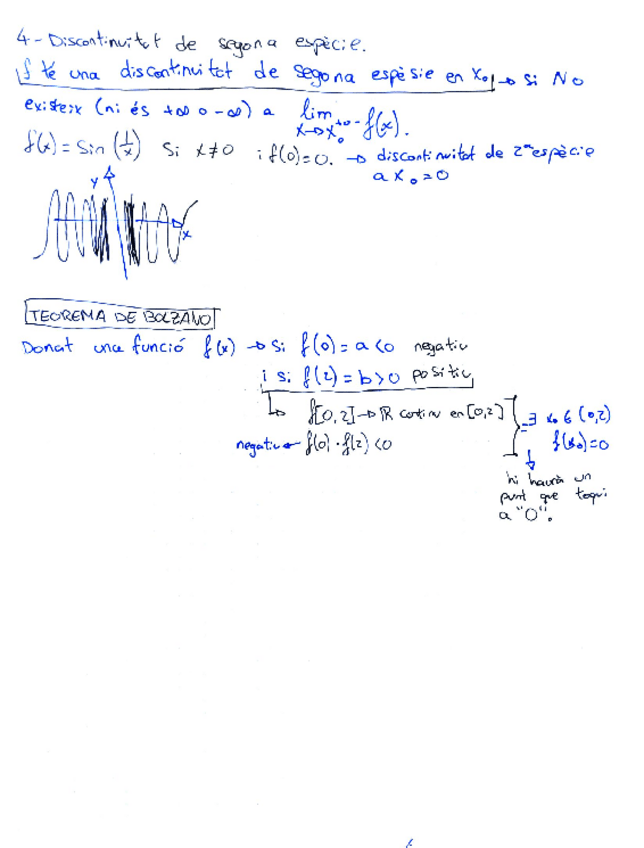 4- Discontinuitat de segona espècie.
f té una discontinuitat de segona espèsie en x₀ → si NO
existeix (ni és +∞ o -∞) a lim x→x₀⁺ᵒ⁻ f(x).
f(x) = sin (1/x) si x≠0 i f(0)=0. → discontinuitat de 2ª espècie
a x₀=0
y
x
TEOREMA DE BOLZANO
Donat una funció f(x) → si f(0) = a<0 negatiu
i si f(2) = b>0 positiu
f[0,2]→ℝ continu en [0,2]
negatiu ← f(0) · f(2) <0
∃ x₀ ∈ (0,2)
f(x₀)=0
hi haurà un
punt que toqui
a "0".